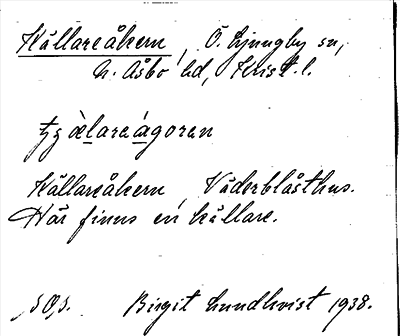 Källareåkern, Ö. Ljungby sn,
N. Åsbo hd, Krist. l.
Källareåkern, Väderblåsthus.
Här finns en källare.
Birgit Lundkvist 1938.